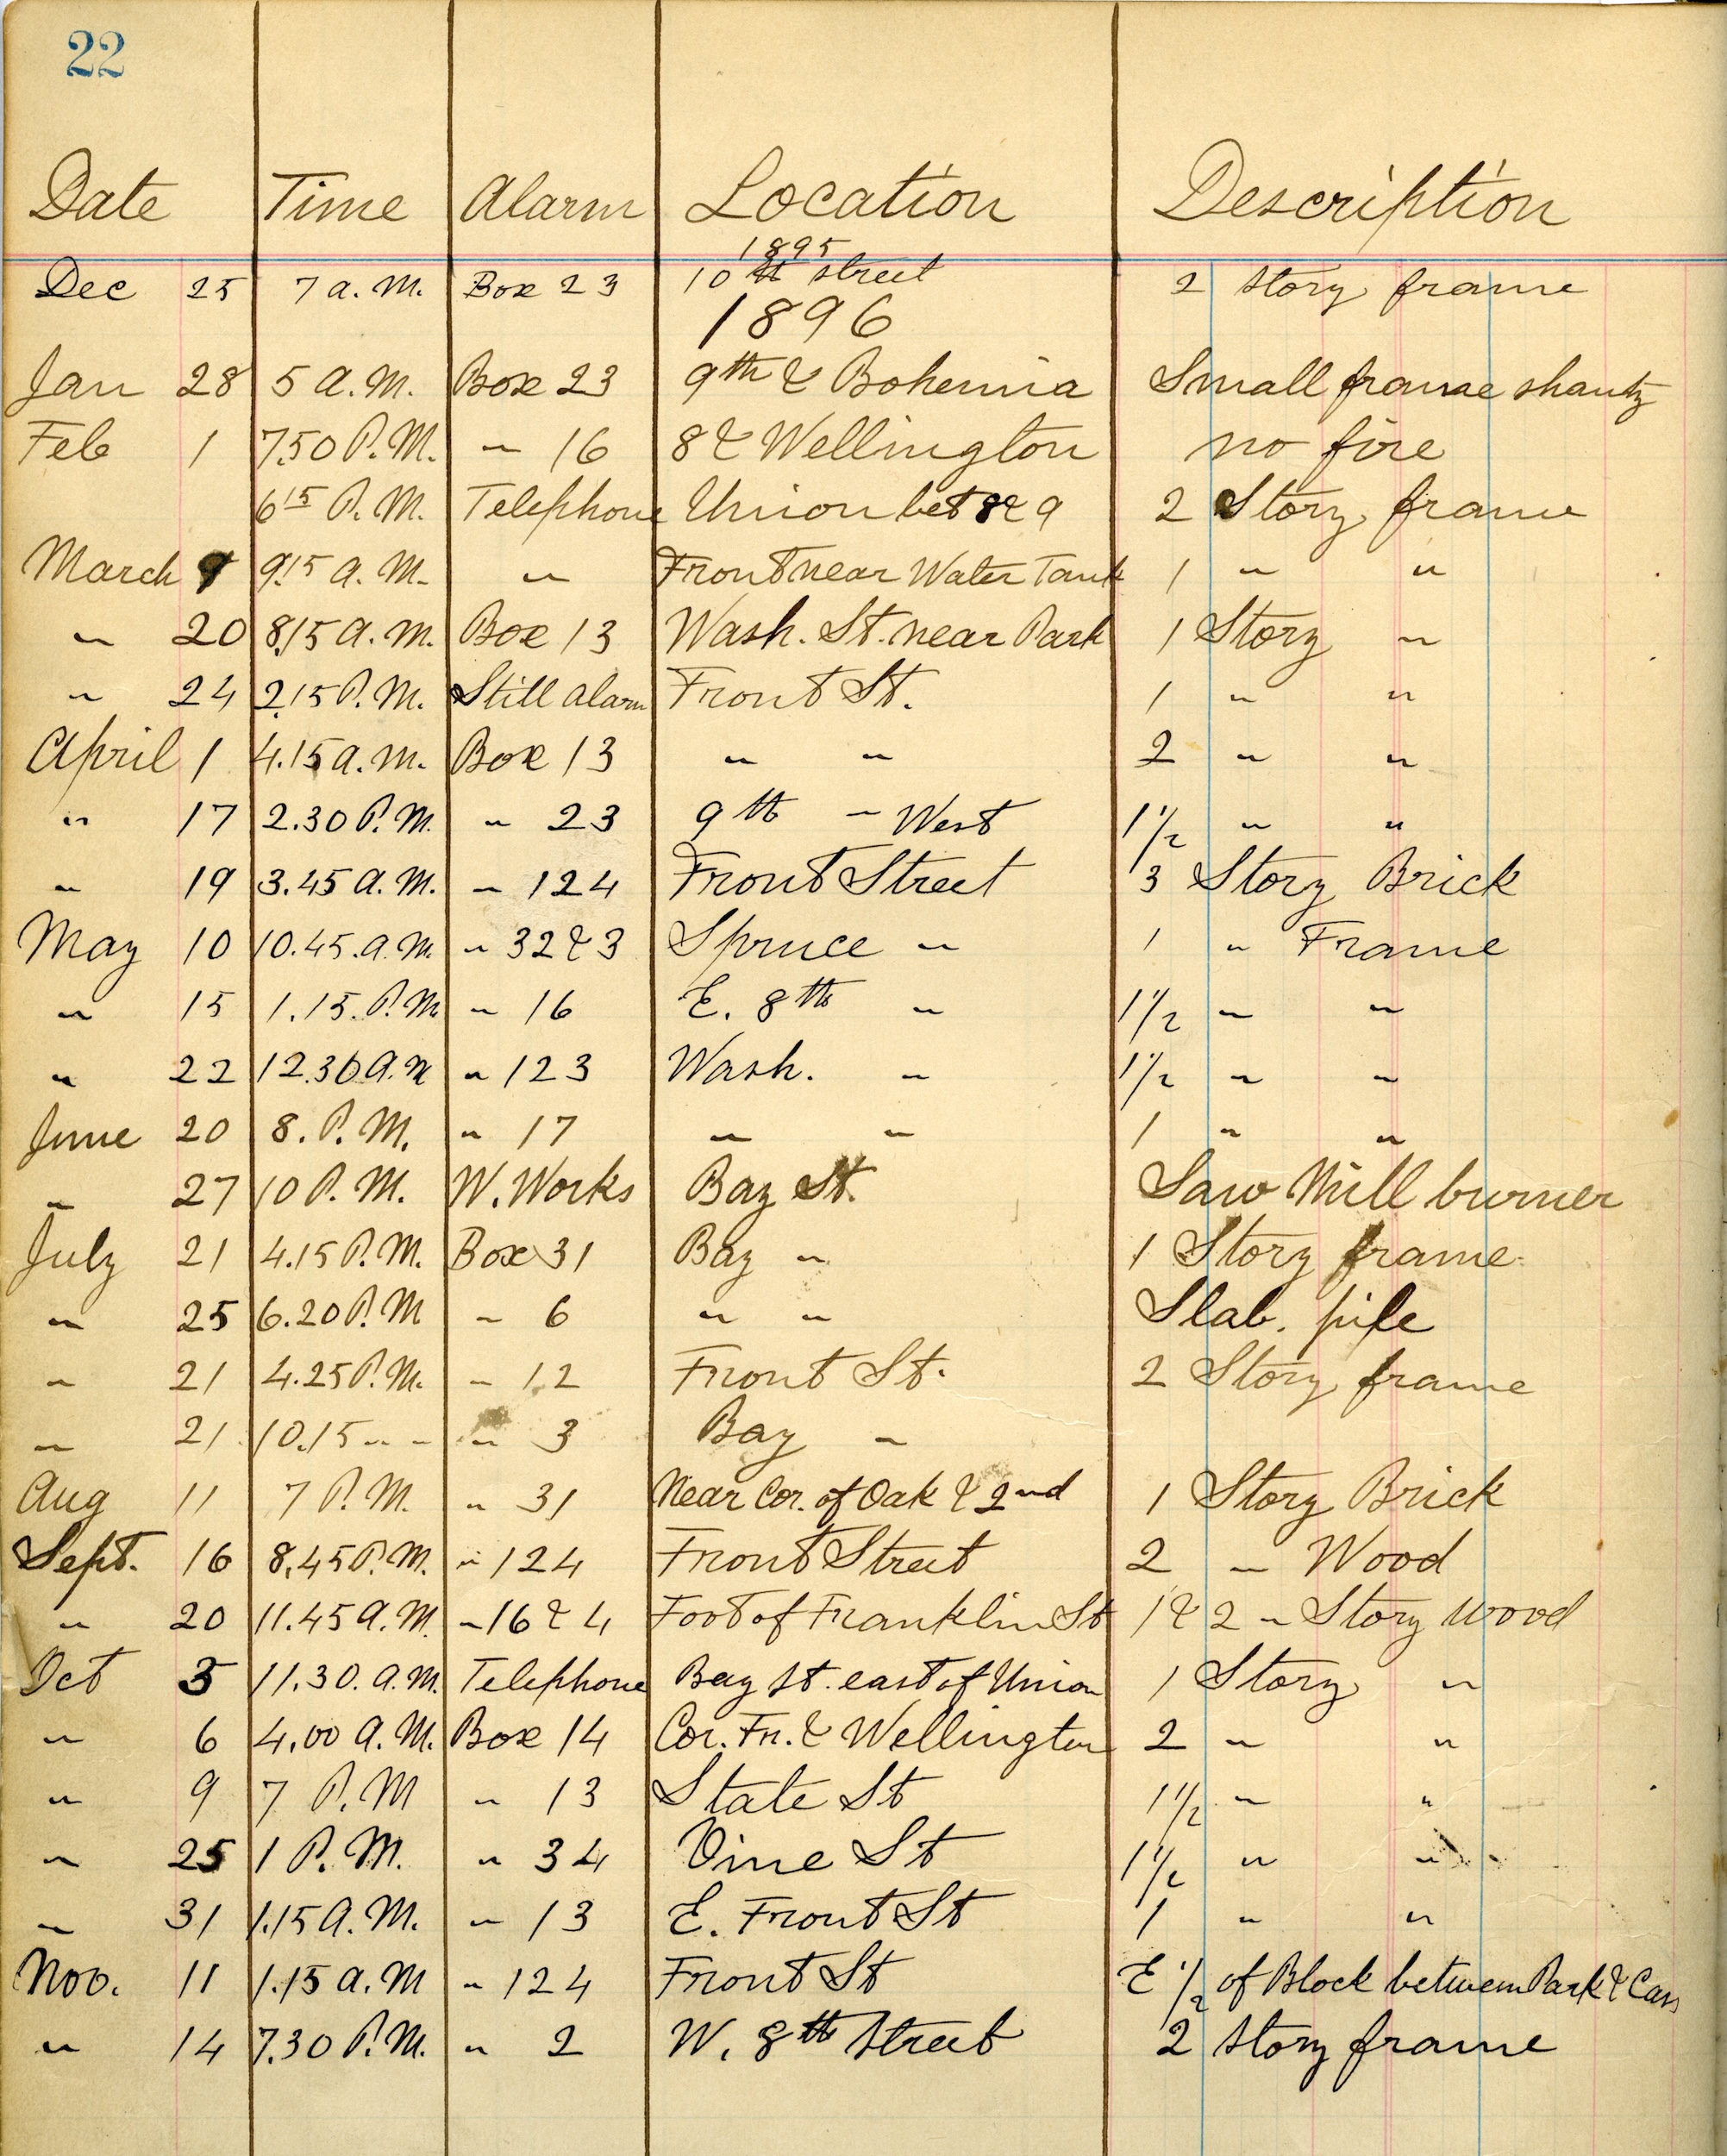 22
Date Time Alarm Location Description
1895
Dec 25 7 a.M. Box 23 10th street 2 story frame
1896
Jan 28 5 A.M. Box 23 9th & Bohemia Small frame shanty
Feb 1 7.50 P.M. " 16 8 & Wellington no fire
6 15 P.M. Telephone Union bet 8 & 9 2 Story frame
March 9 9.15 A.M. " Front near Water Tank 1 " "
" 20 8.15 A.M. Box 13 Wash. St. near Park 1 Story "
" 24 2.15 P.M. Still alarm Front St. 1 " "
April 1 4.15 a.m. Box 13 " " 2 " "
" 17 2.30 P.M. " 23 9th " West 1 1/2 " "
" 19 3.45 A.M. " 124 Front Street 3 Story Brick
May 10 10.45.A.M. " 32 & 3 Spruce " 1 " Frame
" 15 1.15.P.M. " 16 E. 8th " 1 1/2 " "
" 22 12.30 A.M " 123 Wash. " 1 1/2 " "
June 20 8.P.M. " 17 " " 1 " "
" 27 10 P.M. W. Works Bay St. Saw Mill burner
July 21 4.15 P.M. Box 31 Bay " 1 Story frame
" 25 6.20 P.M " 6 " " Slab. pile
" 21 4.25 P.M. " 12 Front St. 2 Story frame
" 21 10.15 " " " 3 Bay "
Aug 11 7 P.M. " 31 Near Cor. of Oak & 2nd 1 Story Brick
Sept. 16 8.45 P.M. " 124 Front Street 2 " Wood
" 20 11.45 A.M. " 16 & 4 Foot of Franklin St 1 & 2 " Story Wood
Oct 5 11.30.A.M. Telephone Bay St. east of Union 1 Story "
" 6 4.00 A.M. Box 14 Cor. Fr. & Wellington 2 " "
" 9 7 P.M " 13 State St 1 1/2 " "
" 25 1 P.M. " 34 Vine St 1 1/2 " "
" 31 1.15 A.M. " 13 E. Front St 1 " "
Nov. 11 1.15 a.M " 124 Front St E 1/2 of Block between Park & Cass
" 14 7.30 P.M. " 2 W. 8th Street 2 story frame